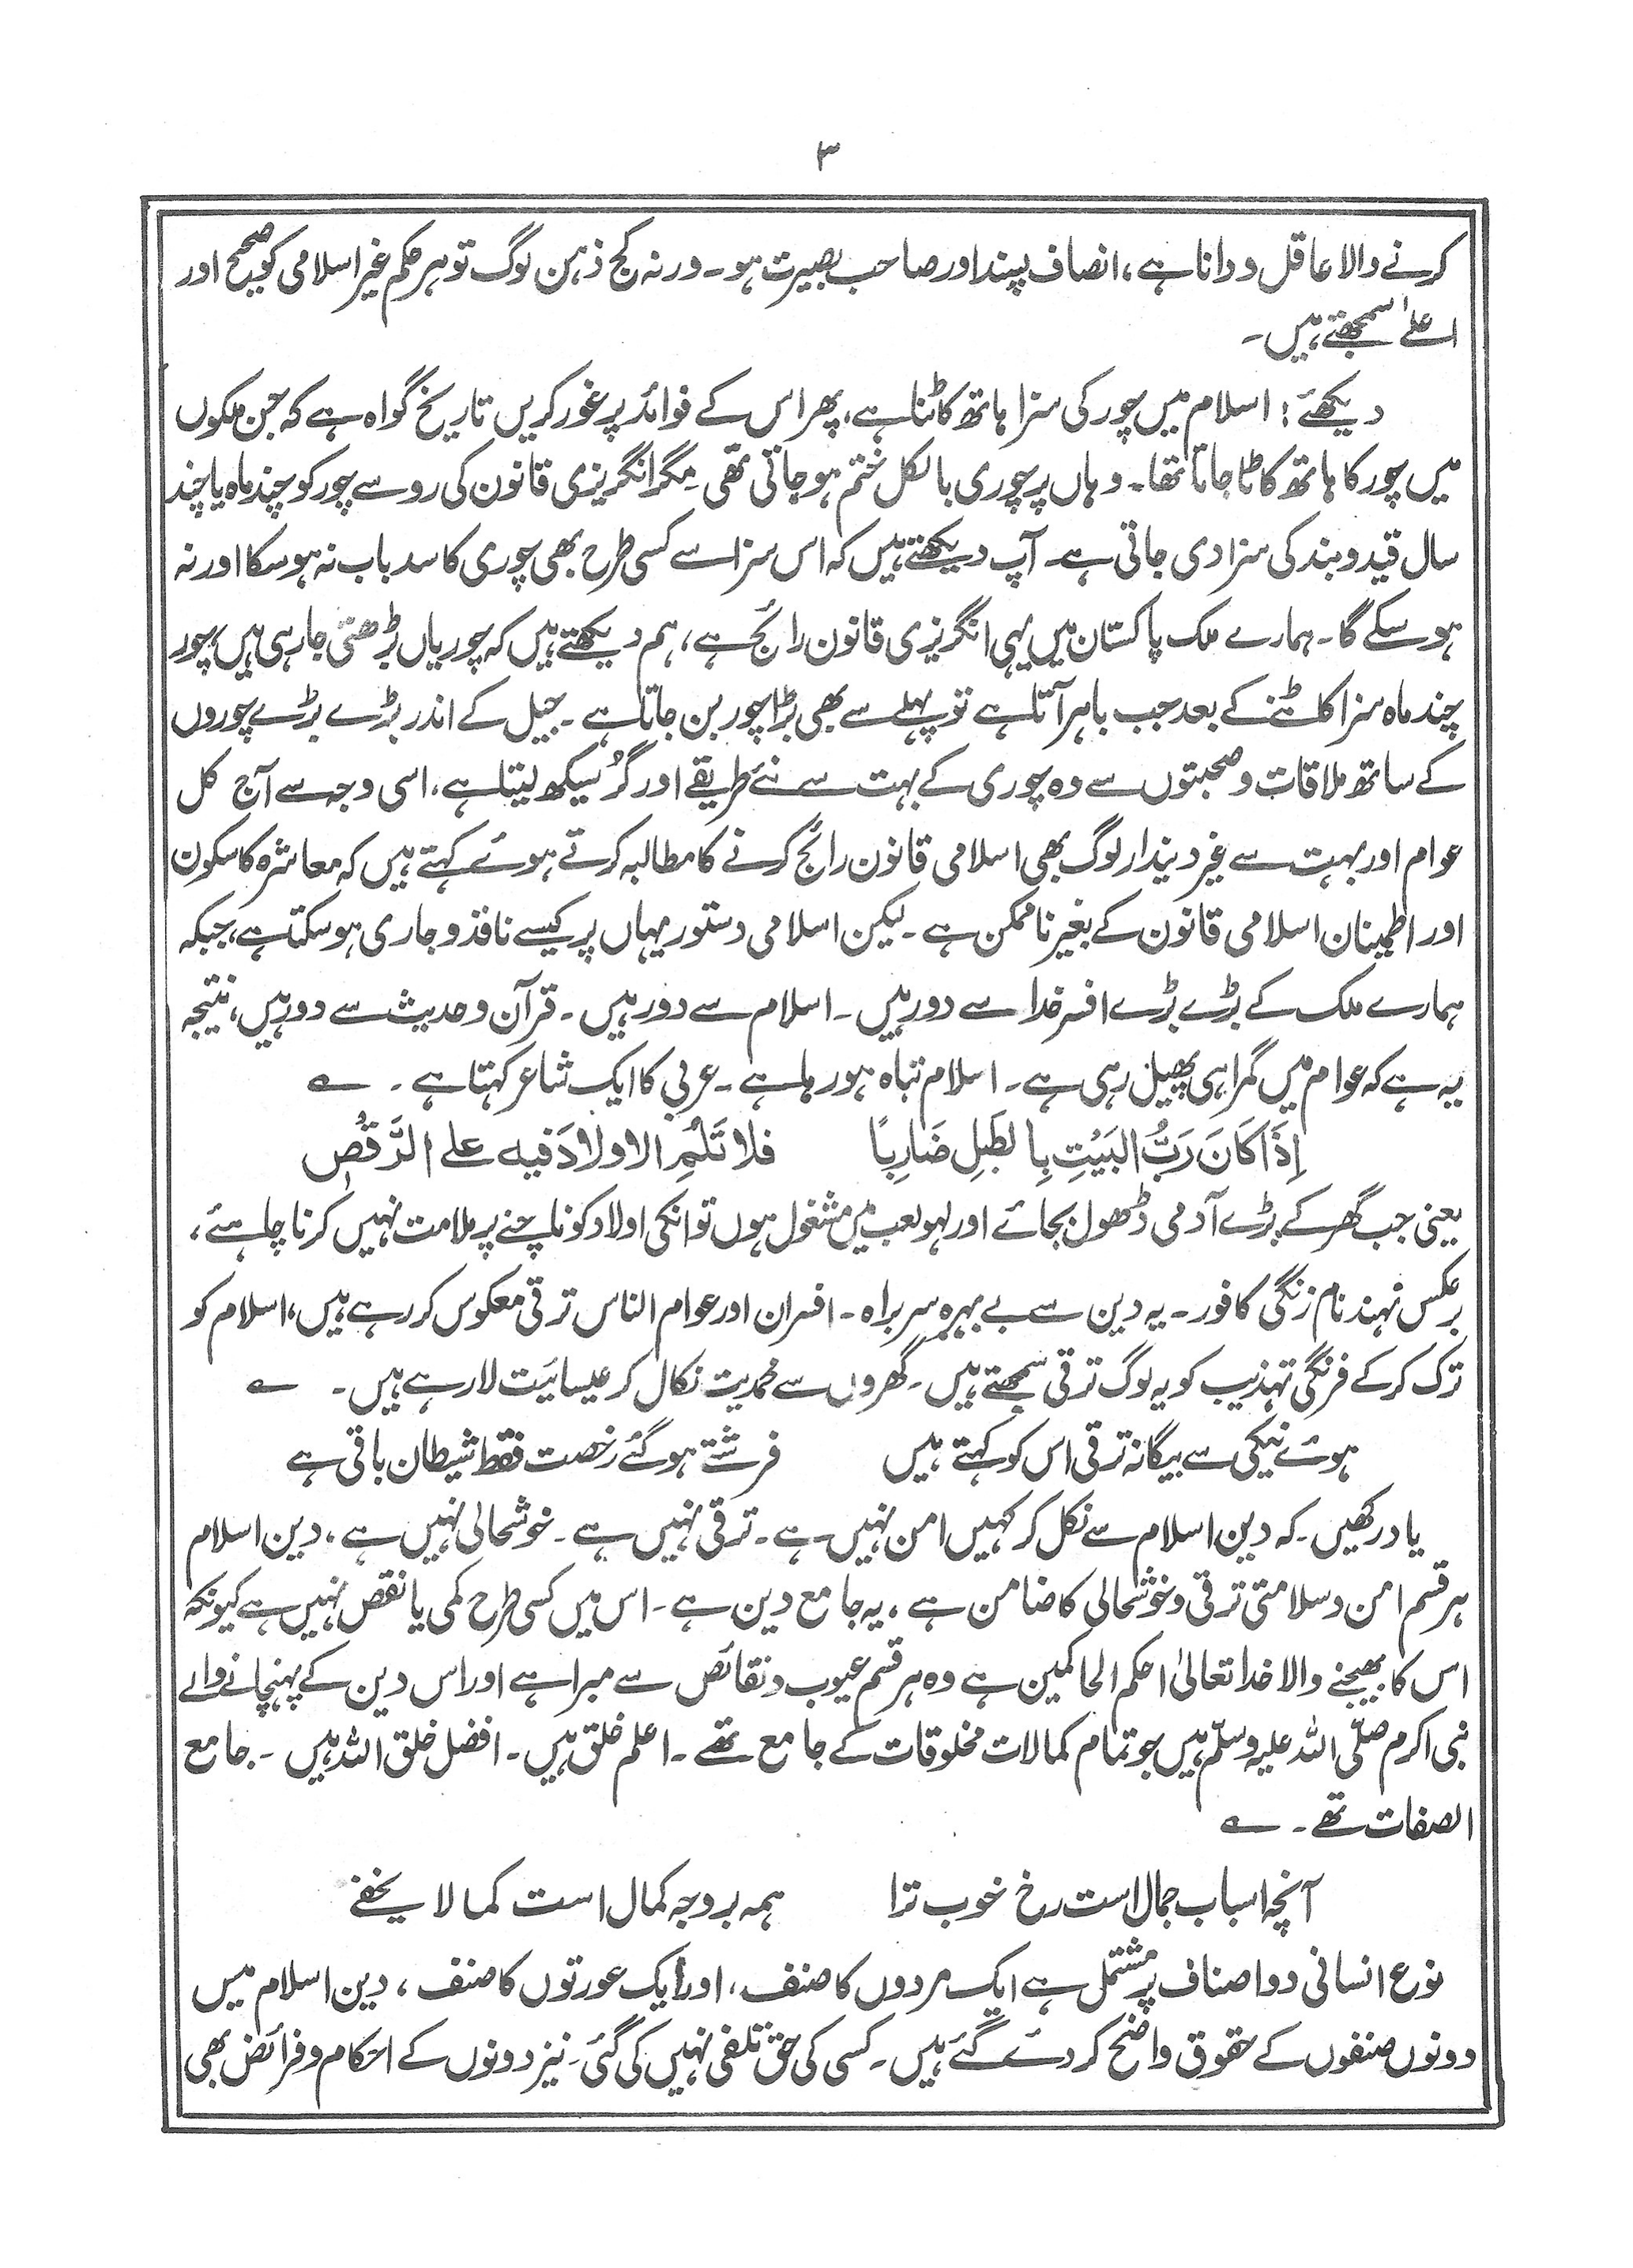 ۳
کرنے والا عاقل و دانا ہے، انصاف پسند اور صاحب بصیرت ہو۔ ورنہ کج ذہن لوگ تو ہر حکم غیر اسلامی کو صحیح اور
اعلےٰ سمجھتے ہیں۔
دیکھئے: اسلام میں چور کی سزا ہاتھ کاٹنا ہے، پھر اس کے فوائد پر غور کریں تاریخ گواہ ہے کہ جن ملکوں
میں چور کا ہاتھ کاٹا جاتا تھا۔ وہاں پر چوری بالکل ختم ہو جاتی تھی۔ مگر انگریزی قانون کی رو سے چور کو چند ماہ یا چند
سال قید و بند کی سزا دی جاتی ہے۔ آپ دیکھتے ہیں کہ اس سزا سے کسی طرح بھی چوری کا سد باب نہ ہو سکا اور نہ
ہو سکے گا۔ ہمارے ملک پاکستان میں یہی انگریزی قانون رائج ہے، ہم دیکھتے ہیں کہ چوریاں بڑھتی جا رہی ہیں، چور
چند ماہ سزا کاٹنے کے بعد جب باہر آتا ہے تو پہلے سے بھی بڑا چور بن جاتا ہے۔ جیل کے اندر بڑے بڑے چوروں
کے ساتھ ملاقات و صحبتوں سے وہ چوری کے بہت سے نئے طریقے اور گُر سیکھ لیتا ہے، اسی وجہ سے آج کل
عوام اور بہت سے غیر دیندار لوگ بھی اسلامی قانون رائج کرنے کا مطالبہ کرتے ہوئے کہتے ہیں کہ معاشرہ کا سکون
اور اطمینان اسلامی قانون کے بغیر ناممکن ہے۔ لیکن اسلامی دستور یہاں پر کیسے نافذ و جاری ہو سکتا ہے، جبکہ
ہمارے ملک کے بڑے بڑے افسر خدا سے دور ہیں۔ اسلام سے دور ہیں۔ قرآن و حدیث سے دور ہیں، نتیجہ
یہ ہے کہ عوام میں گمراہی پھیل رہی ہے۔ اسلام تباہ ہو رہا ہے۔ عربی کا ایک شاعر کہتا ہے۔ ؎
اِذَا کَانَ رَبُّ البَیْتِ بِالطَبلِ ضَارِبًا فلا تَلُمِ الاولادَ فیه علے الرَّقْصِ
یعنی جب گھر کے بڑے آدمی ڈھول بجائے اور لہو لعب میں مشغول ہوں تو انکی اولاد کو ناچنے پر ملامت نہیں کرنا چاہئے،
برعکس نہند نام زنگی کافور۔ یہ دین سے بے بہرہ سربراہ۔ افسران اور عوام الناس ترقی معکوس کر رہے ہیں، اسلام کو
ترک کر کے فرنگی تہذیب کو یہ لوگ ترقی سمجھتے ہیں۔ گھروں سے محمدیت نکال کر عیسائیت لا رہے ہیں۔ ؎
ہوئے نیکی سے بیگانہ ترقی اس کو کہتے ہیں فرشتے ہو گئے رخصت فقط شیطان باقی ہے
یاد رکھیں۔ کہ دین اسلام سے نکل کر کہیں امن نہیں ہے۔ ترقی نہیں ہے۔ خوشحالی نہیں ہے، دین اسلام
ہر قسم امن و سلامتی ترقی و خوشحالی کا ضامن ہے، یہ جامع دین ہے۔ اس میں کسی طرح کمی یا نقص نہیں ہے کیونکہ
اس کا بھیجنے والا خدا تعالیٰ احکم الحاکمین ہے وہ ہر قسم عیوب و نقائص سے مبرا ہے اور اس دین کے پہنچانے والے
نبی اکرم صلّی اللہ علیہ وسلّم ہیں جو تمام کمالات مخلوقات کے جامع تھے۔ اعلم خلق ہیں۔ افضل خلق اللہ ہیں۔ جامع
الصفات تھے۔ ؎
آنچہ اسباب جمال است رخ خوب ترا ہمہ بر وجہ کمال است کما لا یخفے
نوع انسانی دو اصناف پر مشتمل ہے ایک مردوں کا صنف، اور ایک عورتوں کا صنف، دین اسلام میں
دونوں صنفوں کے حقوق واضح کر دئے گئے ہیں۔ کسی کی حق تلفی نہیں کی گئی۔ نیز دونوں کے احکام و فرائض بھی